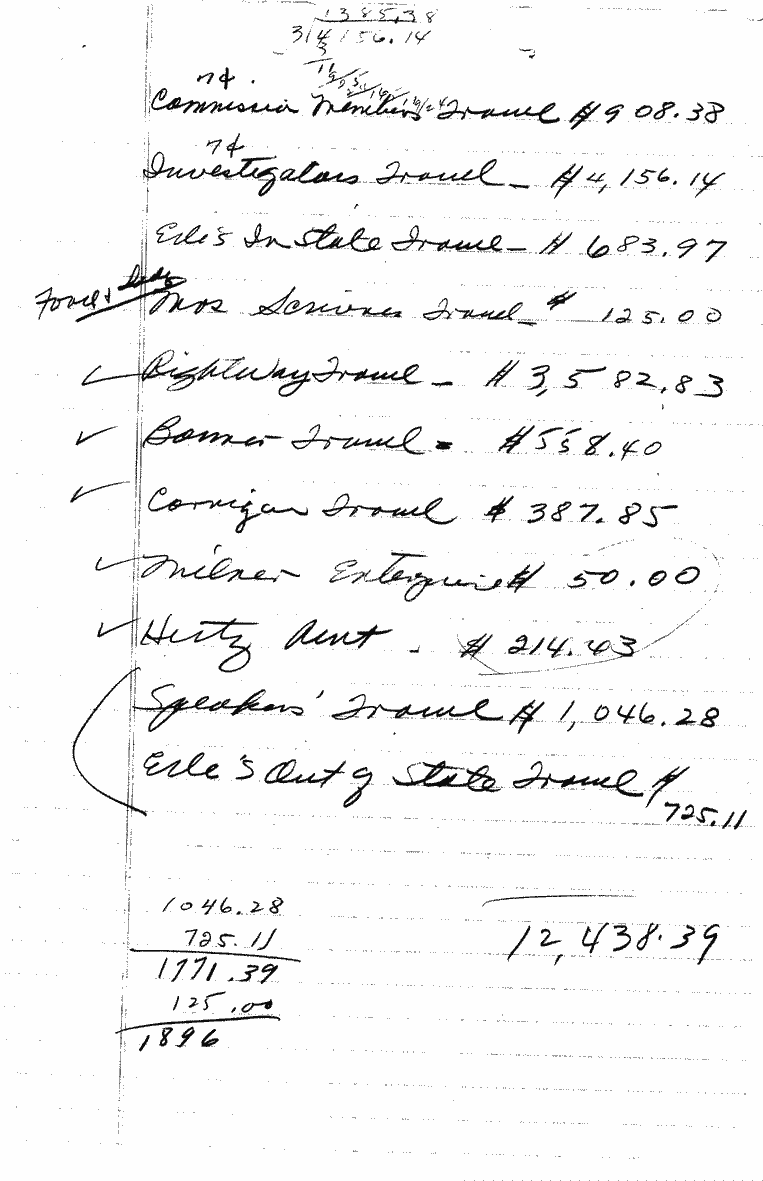 1385.38
3/4156.14
3
11
7¢
Commission Members Travel $908.38
7¢
Investigators Travel - $4,156.14
Erle's In State Travel - $683.97
Food +
Mrs Scriveners Travel - $125.00
✓ Rightway Travel - $3,582.83
✓ Bonner Travel - $558.40
✓ Corrigan Travel $387.85
✓ Milner Enterprises $50.00
✓ Hertz Rent - $214.43
Speakers' Travel $1,046.28
Erle's Out of State Travel $
725.11
1046.28
725.11
1771.39
125.00
1896
12,438.39